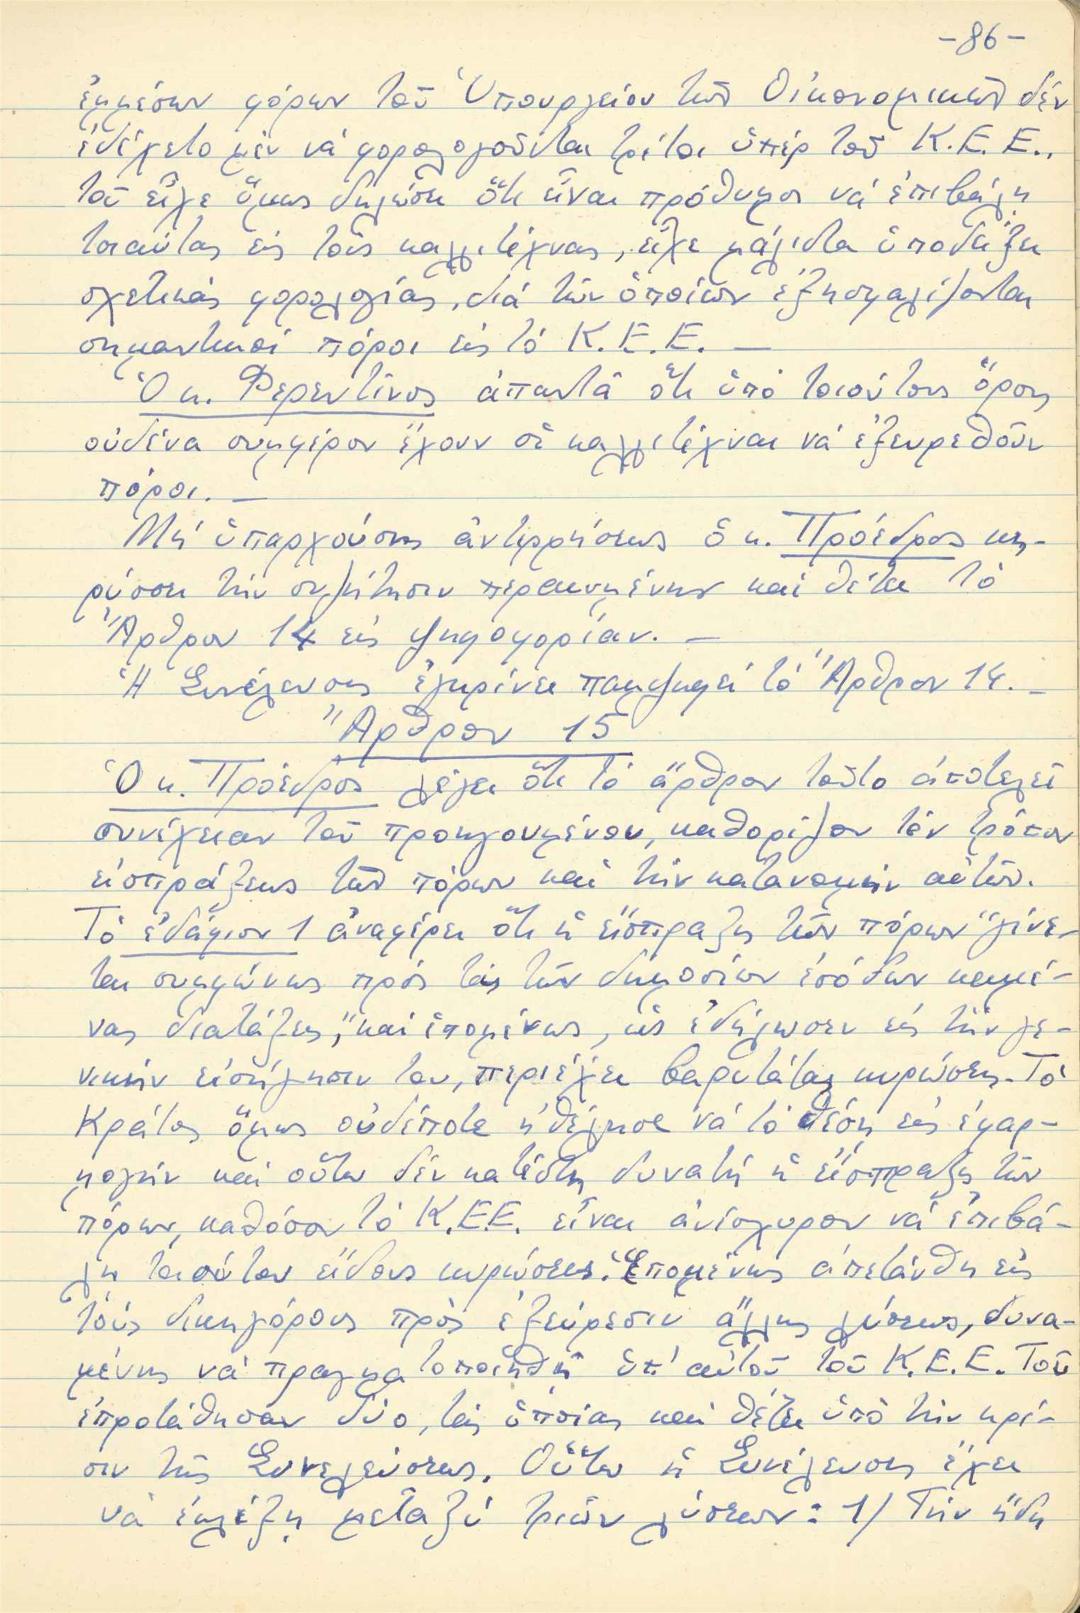 -86-
ἐμμέσων φόρων τοῦ Ὑπουργείου τῶν Οἰκονομικῶν δέν
ἐδέχετο μέν νά φορολογοῦνται τρίτοι ὑπέρ τοῦ Κ.Ε.Ε.,
τοῦ εἶχε ὅμως δηλώσει ὅτι εἶναι πρόθυμοι νά ἐπιβάλῃ
τοιαύτας εἰς τούς καλλιτέχνας, εἶχε μάλιστα ὑποδείξει
σχετικάς φορολογίας, διά τῶν ὁποίων ἐξησφαλίζονται
σημαντικοί πόροι εἰς τό Κ.Ε.Ε. —
Ὁ κ. Φερεντῖνος ἀπαντᾶ ὅτι ὑπό τοιούτους ὅρους
οὐδένα συμφέρον ἔχουν οἱ καλλιτέχναι νά ἐξευρεθοῦν
πόροι. —
Μή ὑπαρχούσης ἀντιρρήσεως ὁ κ. Πρόεδρος κη-
ρύσσει τήν συζήτησιν περαιωμένην καί θέτει τό
Ἄρθρον 14 εἰς ψηφοφορίαν. —
Ἡ Συνέλευσις ἐγκρίνει παμψηφεί τό Ἄρθρον 14. —
Ἄρθρον 15
Ὁ κ. Πρόεδρος λέγει ὅτι τό ἄρθρον τοῦτο ἀποτελεῖ
συνέχειαν τοῦ προηγουμένου, καθορίζον τόν τρόπον
εἰσπράξεως τῶν πόρων καί τήν κατανομήν αὐτῶν.
Τό ἐδάφιον 1 ἀναφέρει ὅτι ἡ εἴσπραξις τῶν πόρων "γίνε-
ται συμφώνως πρός τάς τῶν δημοσίων ἐσόδων κειμέ-
νας διατάξεις," καί ἑπομένως, ὡς ἐδήλωσεν εἰς τήν γε-
νικήν εἰσήγησιν του, περιέχει βαρυτάτας κυρώσεις. Τό
Κράτος ὅμως οὐδέποτε ἠθέλησε νά τό θέσῃ εἰς ἐφαρ-
μογήν καί οὕτω δέν κατέστη δυνατή ἡ εἴσπραξις τῶν
πόρων, καθόσον τό Κ.Ε.Ε. εἶναι ἀνίσχυρον νά ἐπιβά-
λῃ τοιούτου εἴδους κυρώσεις. Ἑπομένως ἀπετάνθη εἰς
τούς δικηγόρους πρός ἐξεύρεσιν ἄλλης λύσεως, δυνα-
μένης νά πραγματοποιηθῇ ὑπ' αὐτοῦ τοῦ Κ.Ε.Ε. Τοῦ
ἐπροτάθησαν δύο, τάς ὁποίας καί θέτει ὑπό τήν κρί-
σιν τῆς Συνελεύσεως. Οὕτω ἡ Συνέλευσις ἔχει
νά ἐκλέξῃ μεταξύ τριῶν λύσεων: 1/ Τήν ἤδη